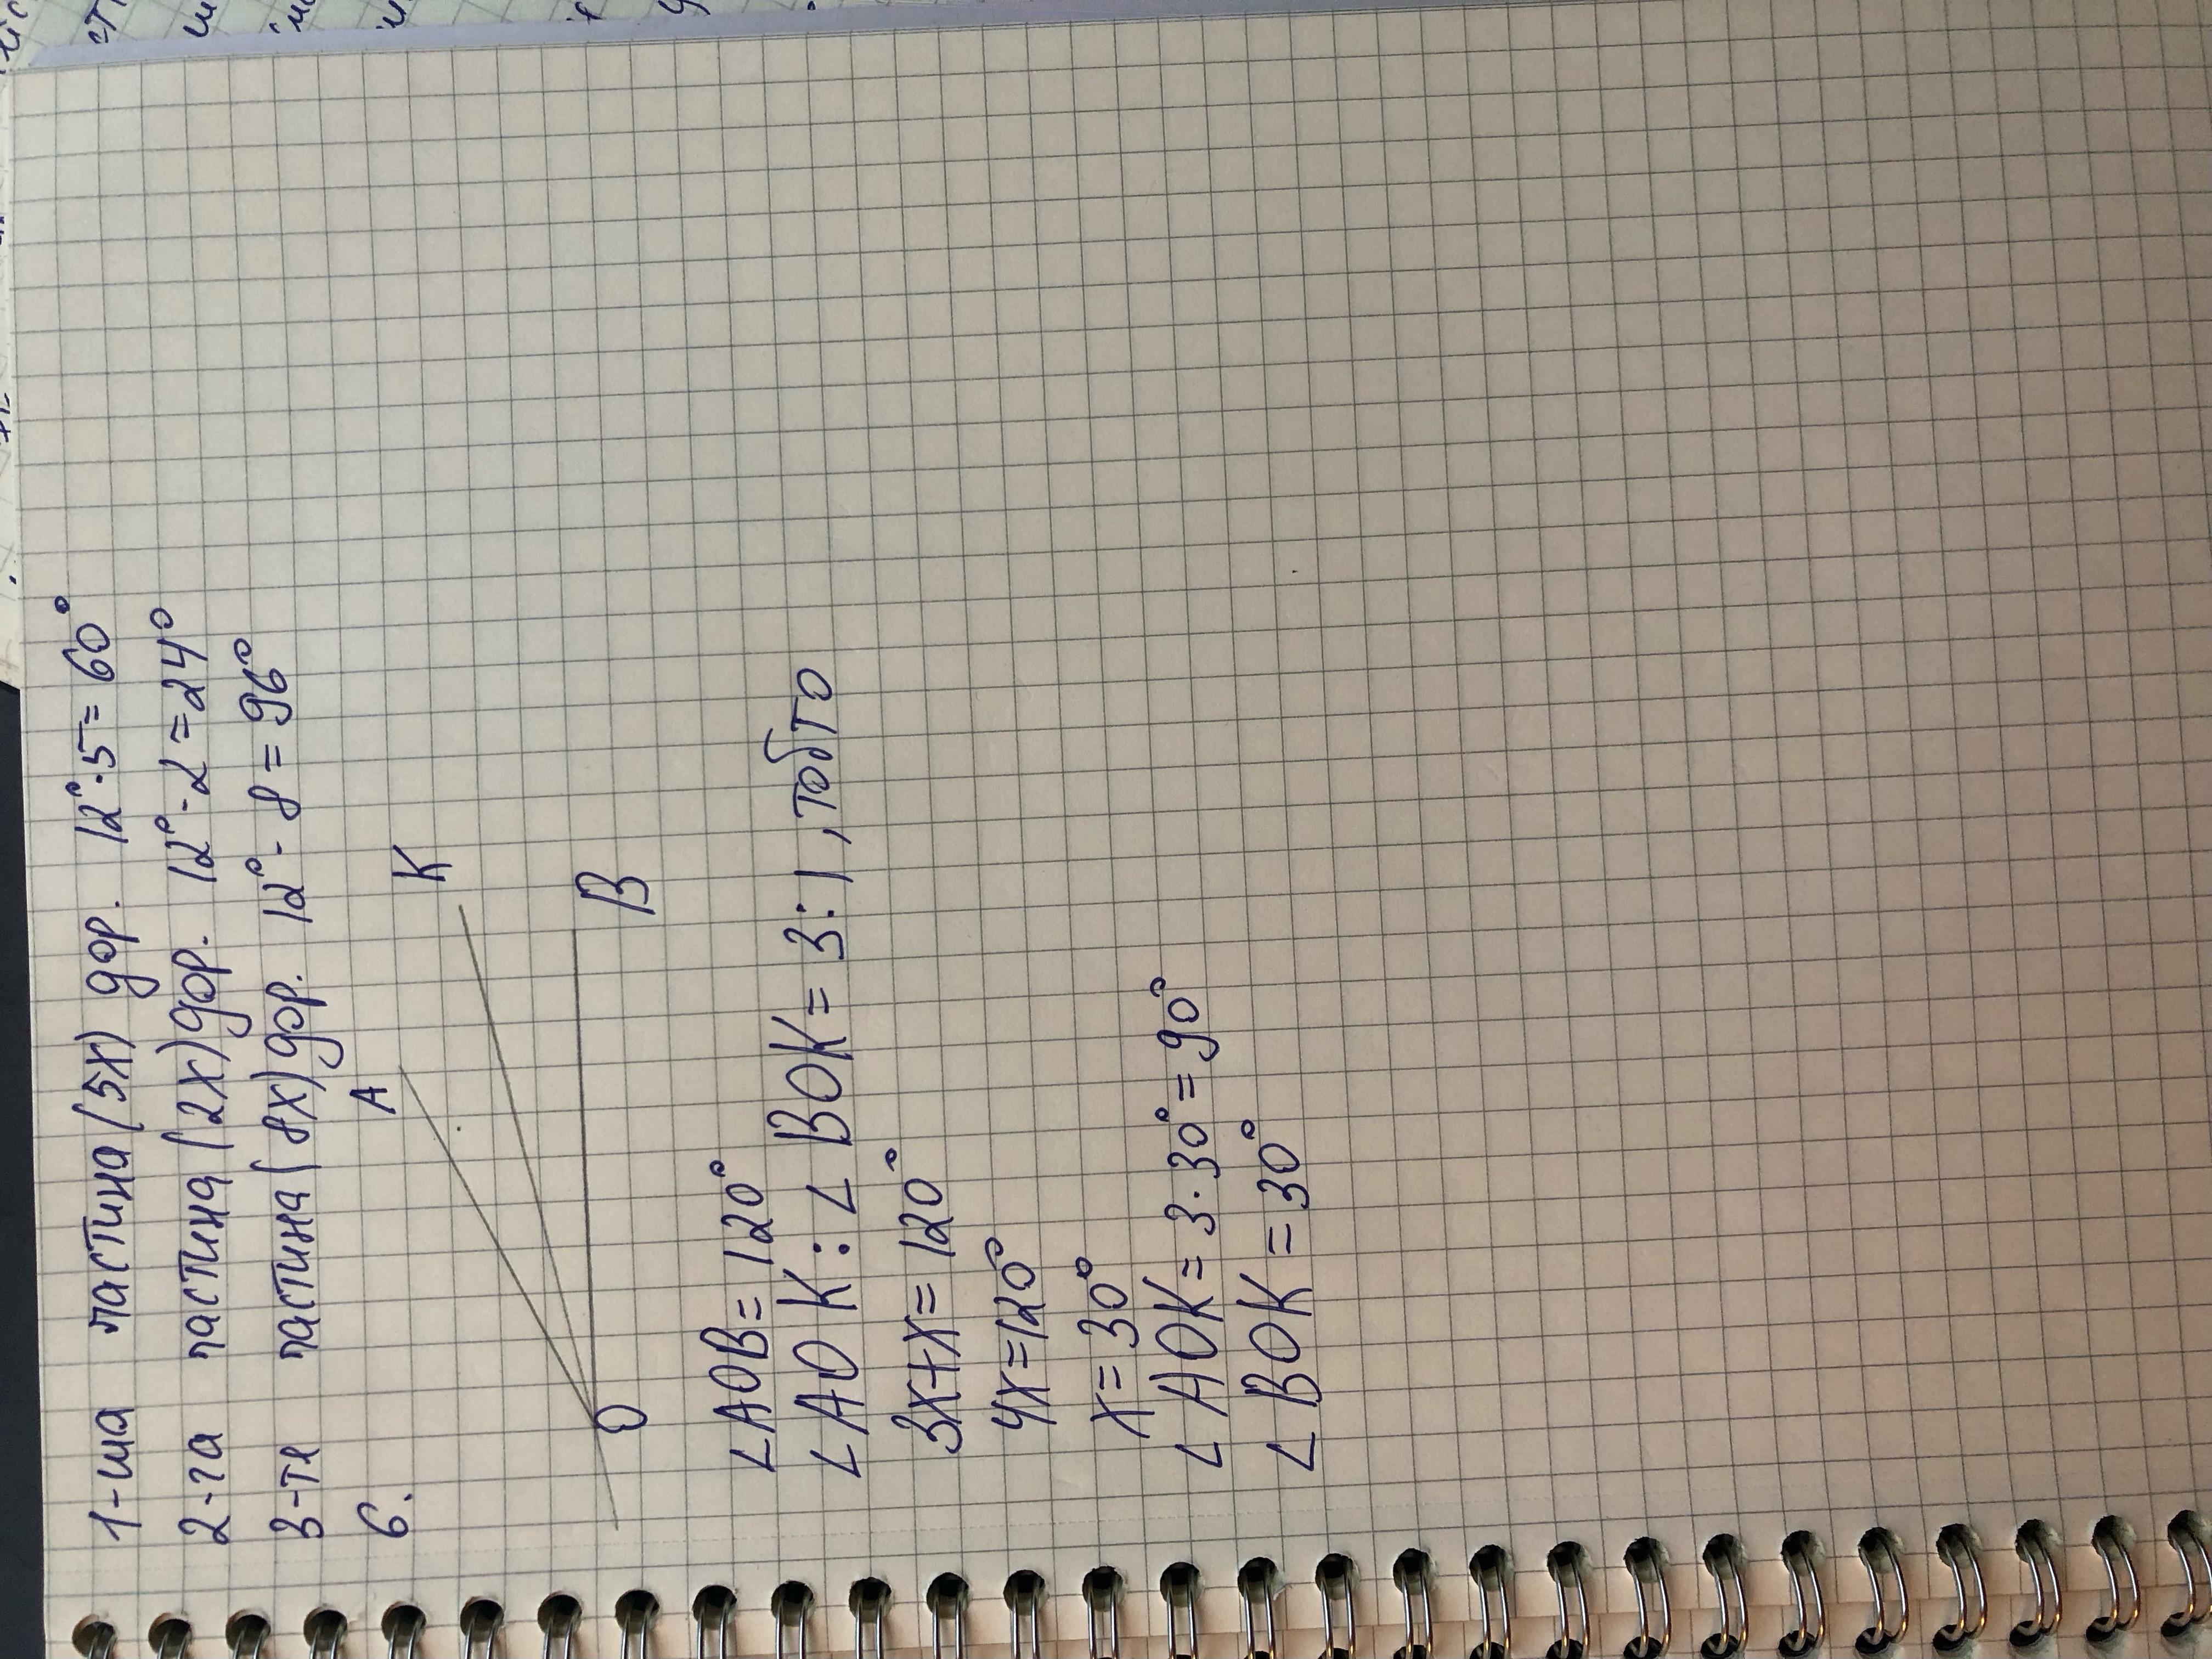 1-ша частина (5х) дор. 12°·5=60°
2-га частина (2х) дор. 12°·2=24°
3-те частина (8х) дор. 12°·8=96°
6.
А
К
В
О
∠AOB=120°
∠AOK:∠BOK=3:1, тобто
3х+х=120°
4х=120°
х=30°
∠AOK=3·30°=90°
∠BOK=30°